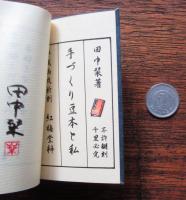 田中栞著
不許翻刻
千里必究
手づくり豆本と私
紅梅堂梓
田中栞
1